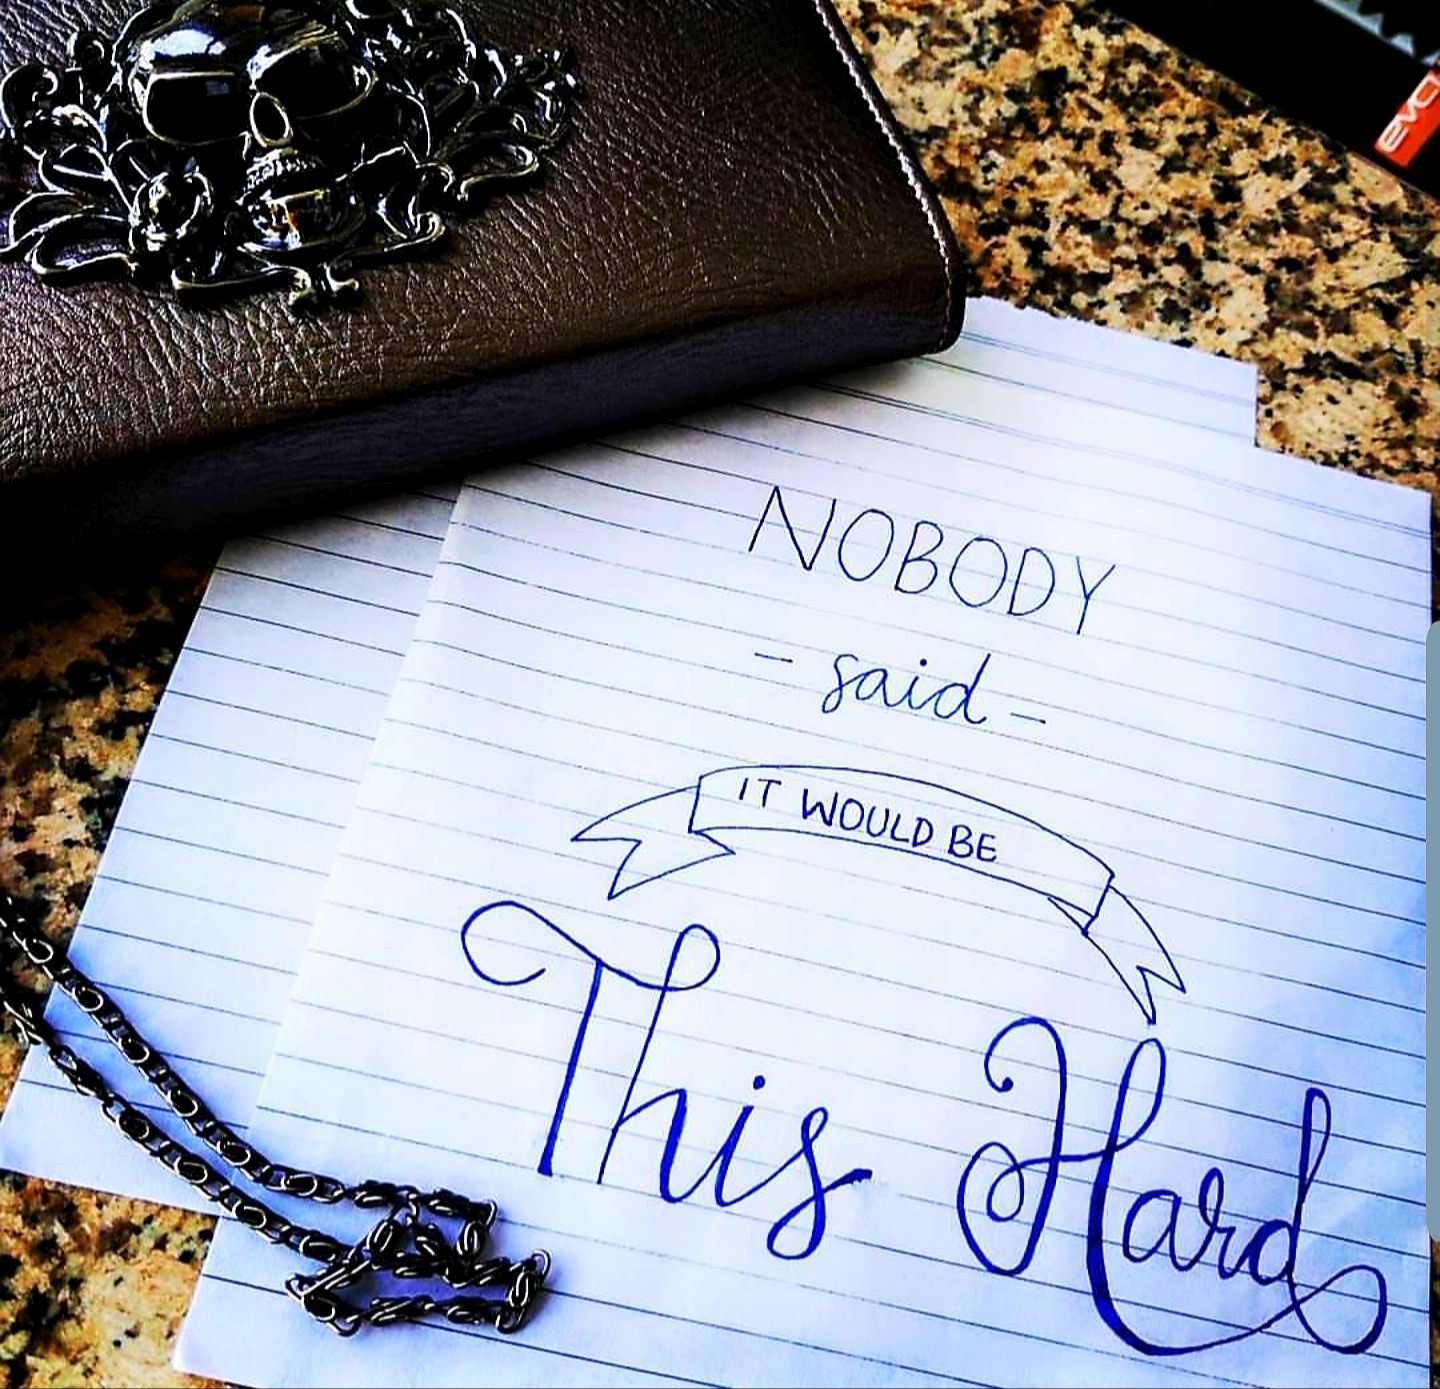 EVO
NOBODY
- said -
IT WOULD BE
This Hard